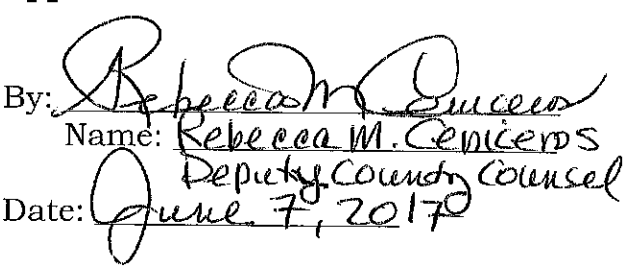 By: Rebecca M Ceniceros
Name: Rebecca M. Ceniceros
Deputy County Counsel
Date: June 7, 2017